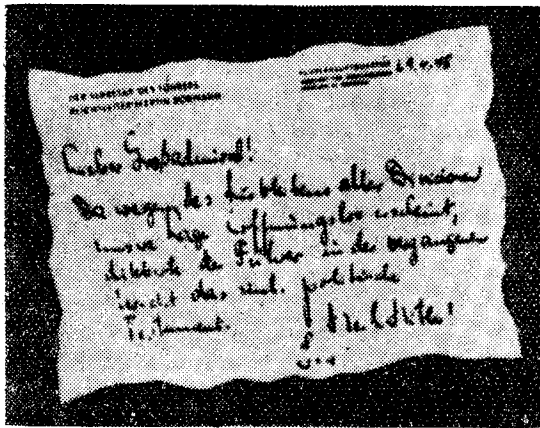 DER SEKRETÄR DES FÜHRERS
REICHSLEITER MARTIN BORMANN
FÜHRERHAUPTQUARTIER 29.4.45
Lieber Großadmiral!
Da wegen des Ausbleibens aller Divisionen
unsere Lage hoffnungslos erscheint,
diktierte der Führer in der vergangenen
Nacht das anl. politische
Testament.
Heil Hitler!